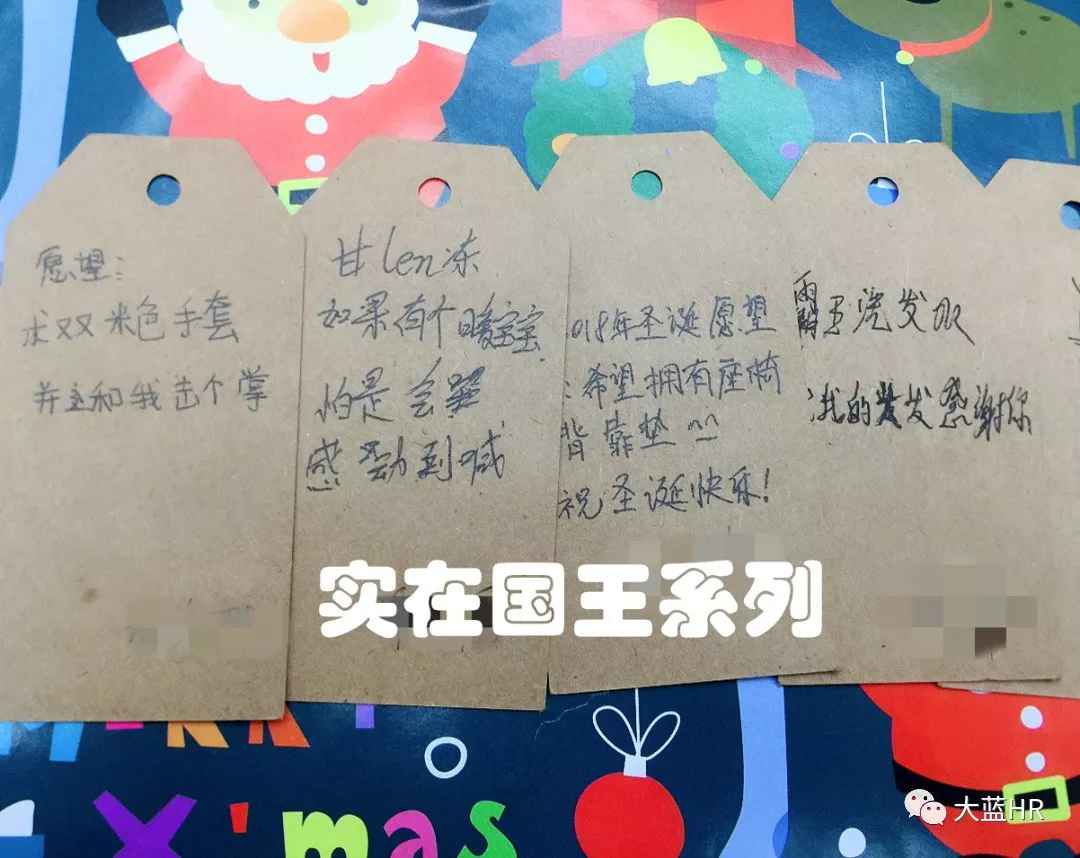 愿望：
求双米色手套
并且和我击个掌
甘len冻
如果有个暖宝宝
怕是会哭
感动到喊
018年圣诞愿望
：希望拥有座椅
背靠垫^^
祝圣诞快乐！
霸王洗发水
我的发感谢你
实在国王系列
X'mas
大蓝HR